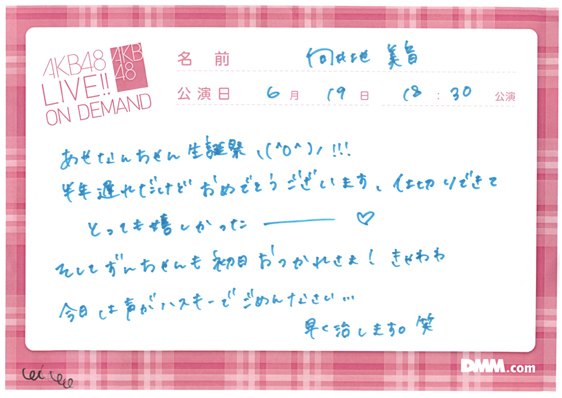 AKB48
LIVE!!
ON DEMAND
AKB
48
名前 向井地 美音
公演日 6月 19日 18:30 公演
あせなんちゃん生誕祭ヽ(^o^)ノ!!!
半年遅れだけどおめでとうございます、仕切りできて
とっても嬉しかったーーー♡
そしてずんちゃんも初日おつかれさま!きゃわわ
今日は声がハスキーでごめんなさい…
早く治します。笑
DMM.com